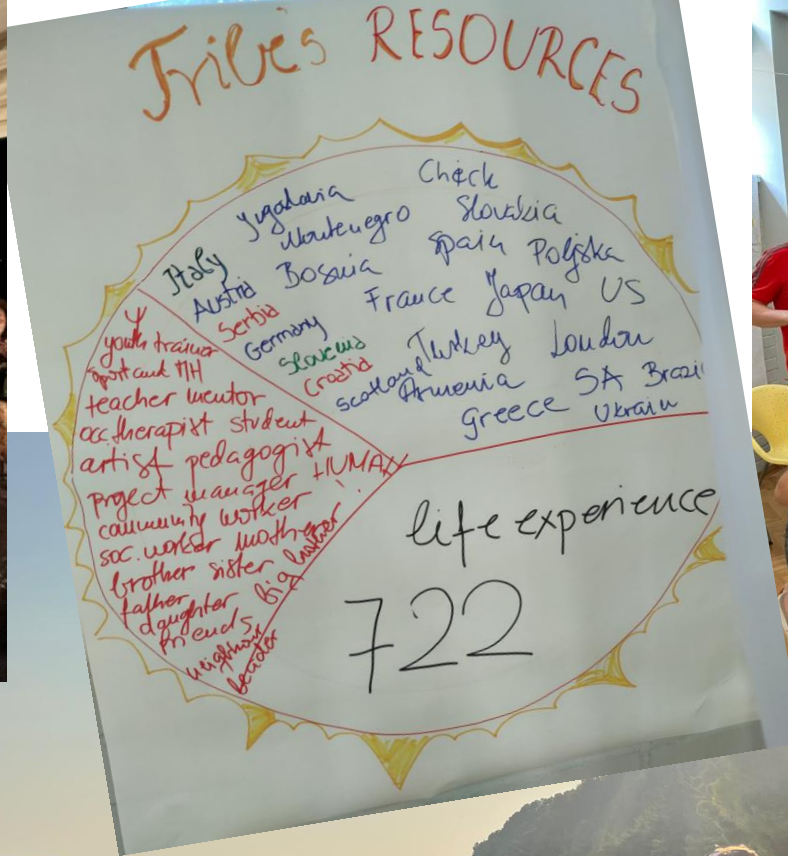 Tribe's RESOURCES
Yugoslavia
Check
Montenegro
Slovakia
Italy
Bosnia
Spain
Poljska
Austria
France
Japan
US
Serbia
Germany
Turkey
London
Slovenia
Croatia
Scotland
Armenia
SA
Brazil
Greece
Ukrain
youth trainer
sport and MH
teacher mentor
occ. therapist student
artist pedagogist
project manager HUMAN
community worker !
soc. worker mother
brother sister big brother
father
daughter
friends
neighbour
life experience
722